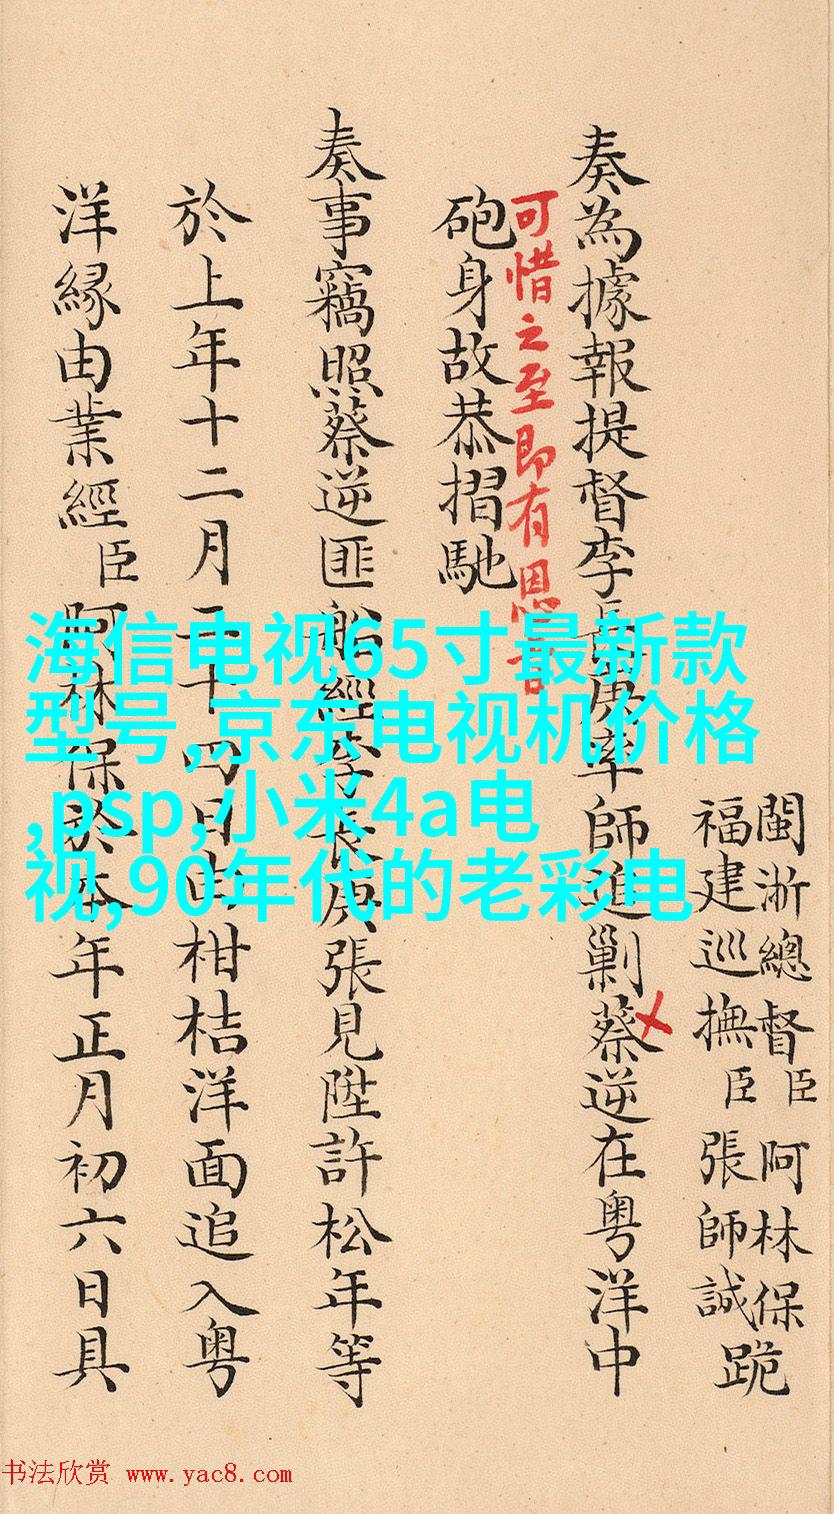 閩浙總督臣阿林保
福建巡撫臣張師誠
跪
奏為據報提督李長庚率師進剿蔡逆在粤洋中
可惜之至即有恩旨
砲身故恭摺馳
奏事竊照蔡逆匪船經李長庚張見陞許松年等
於上年十二月二十四日由柑桔洋面追入粤
洋緣由業經臣阿林保於本年正月初六日具
海信电视65寸最新款
型号,京东电视机价格
,psp,小米4a电
视,90年代的老彩电
书法欣赏 www.yac8.com